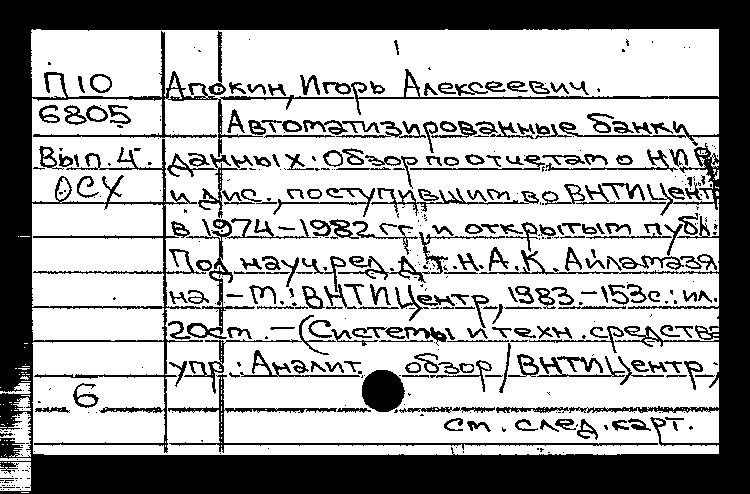 П10 Апокин, Игорь Алексеевич.
6805 Автоматизированные банки
Вып. 4. данных: Обзор по отчетам о НИР
ОСХ и дис., поступившим во ВНТИЦентр
в 1974-1982 гг. и открытым публ.
Под науч. ред. д.т.н. А.К. Айламазя
на. - М.: ВНТИЦентр, 1983. - 153 с.: ил.
20см. - (Системы и техн. средства
упр.: Аналит. обзор / ВНТИЦентр;
6
см. след. карт.